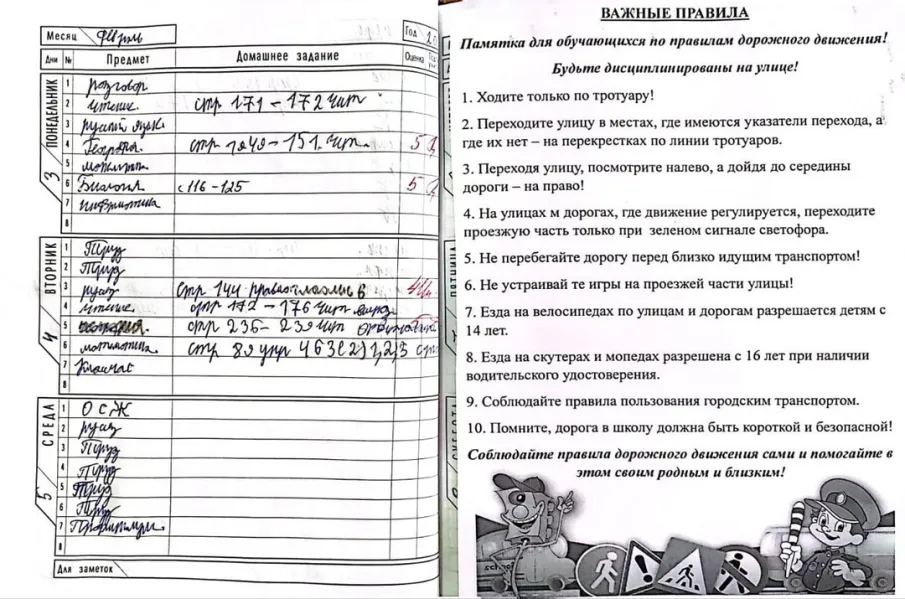 Месяц Февраль
Год
Дни № Предмет Домашнее задание Оценка
ПОНЕДЕЛЬНИК
3
1 разговор
2 чтение стр 171 - 172 чит
3 русский язык
4 География стр 149 - 151. чит. 5
5 математика
6 Биология с 116 - 125 5
7 информатика
8
ВТОРНИК
4
1 Труд
2 Труд
3 русяз стр 144
4 чтение стр 172 - 176 чит
5 стр 236 - 239 чит
6 математика стр 89 упр 463(2) 1,2,3
7 Класчас
8
СРЕДА
5
1 О С Ж
2 русяз
3 Труд
4 Труд
5 Труд
6 Труд
7
8
Для заметок
ПЯТНИЦА
СУББОТА
ВАЖНЫЕ ПРАВИЛА
Памятка для обучающихся по правилам дорожного движения!
Будьте дисциплинированы на улице!
1. Ходите только по тротуару!
2. Переходите улицу в местах, где имеются указатели перехода, а
где их нет – на перекрестках по линии тротуаров.
3. Переходя улицу, посмотрите налево, а дойдя до середины
дороги – на право!
4. На улицах м дорогах, где движение регулируется, переходите
проезжую часть только при зеленом сигнале светофора.
5. Не перебегайте дорогу перед близко идущим транспортом!
6. Не устраивай те игры на проезжей части улицы!
7. Езда на велосипедах по улицам и дорогам разрешается детям с
14 лет.
8. Езда на скутерах и мопедах разрешена с 16 лет при наличии
водительского удостоверения.
9. Соблюдайте правила пользования городским транспортом.
10. Помните, дорога в школу должна быть короткой и безопасной!
Соблюдайте правила дорожного движения сами и помогайте в
этом своим родным и близким!
school